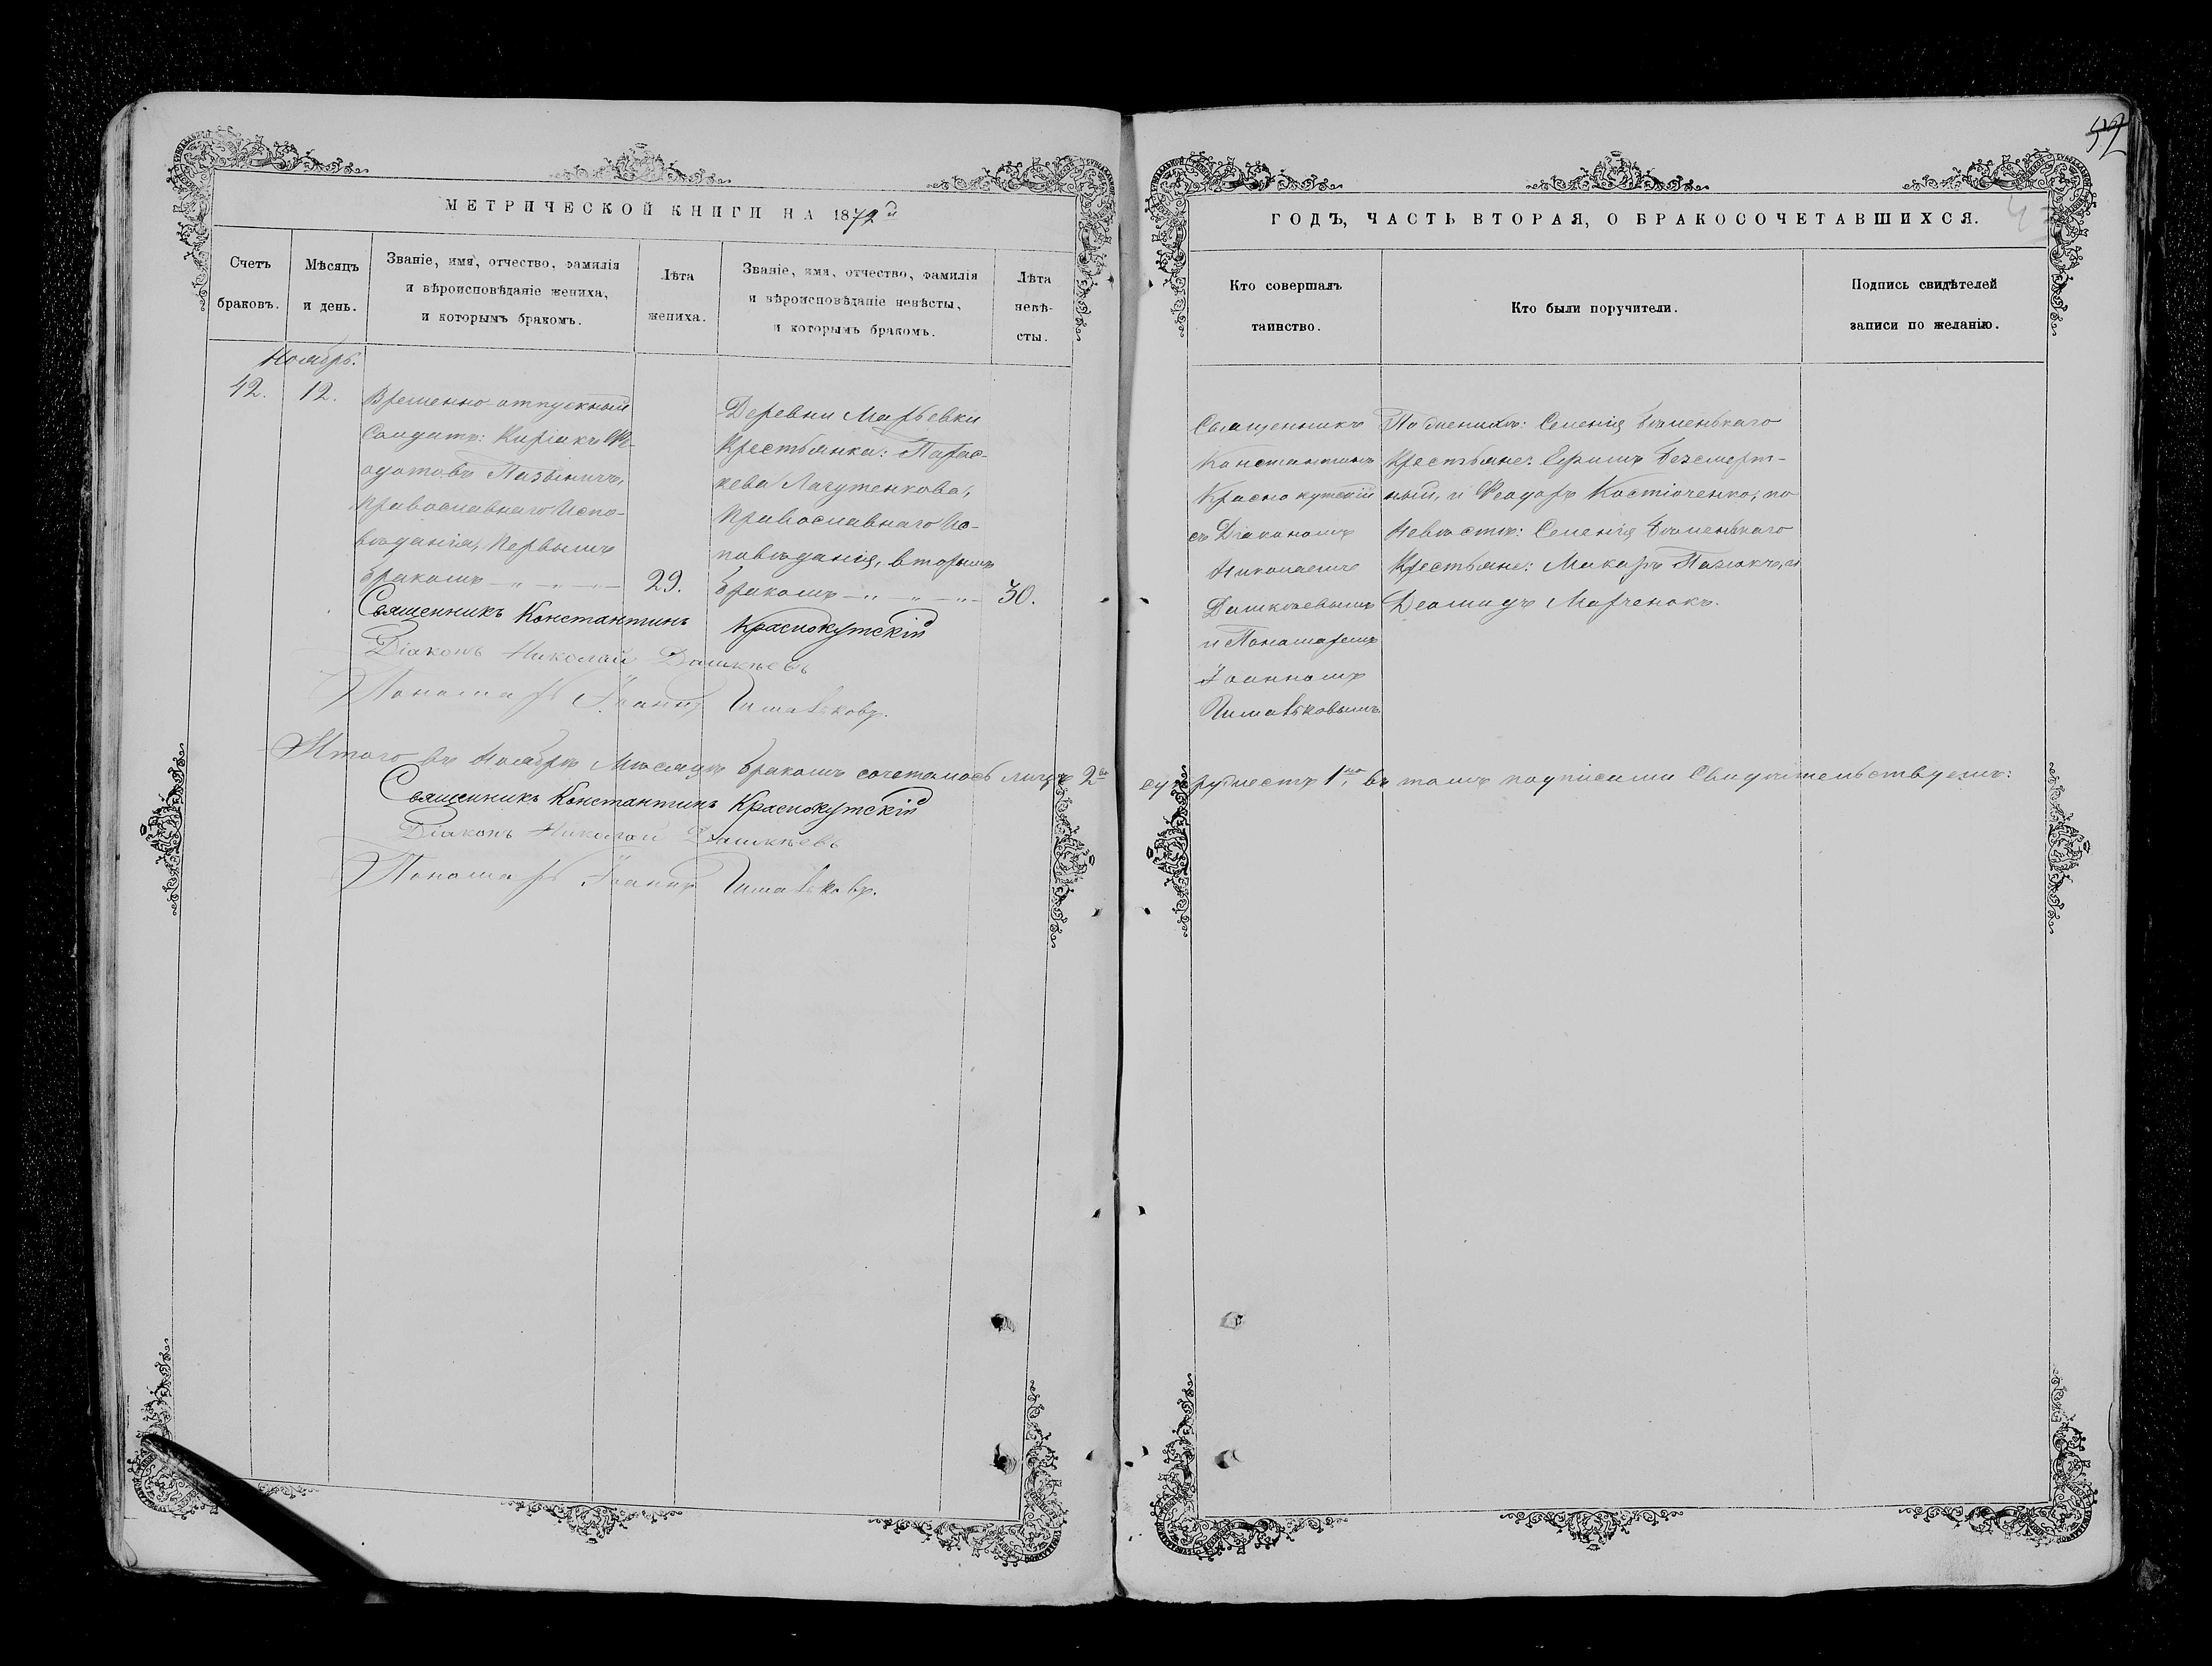 52
МЕТРИЧЕСКОЙ КНИГИ НА 1872й
ГОДЪ, ЧАСТЬ ВТОРАЯ, О БРАКОСОЧЕТАВШИХСЯ.
Счетъ
браковъ.
Мѣсяцъ
и день.
Званіе, имя, отчество, фамилія
и вѣроисповѣданіе жениха,
и которымъ бракомъ.
Лѣта
жениха.
Званіе, имя, отчество, фамилія
и вѣроисповѣданіе невѣсты,
и которымъ бракомъ.
Лѣта
невѣ-
сты.
Кто совершалъ
таинство.
Кто были поручители.
Подпись свидѣтелей
записи по желанію.
Ноябрь.
42.
12.
Временно-отпускный
Солдатъ: Киріакъ Ѳе-
одотовъ
Православнаго Испо-
вѣданія, Первымъ
бракомъ
29.
Деревни Марьевки
Крестьянка: Парас-
кева Лагутенкова,
Православнаго Ис-
повѣданія, вторымъ
бракомъ
30.
Священникъ
Константинъ
Краснокутскій
съ Діакономъ
Николаемъ
Дашкѣевымъ
и Пономаремъ
Іоанномъ
По Женихѣ: Селенія
Крестьяне: Ефимъ Безсмерт-
ный, и Ѳеодоръ Костюченко, по
Невѣстѣ: Селенія
Крестьяне: Макаръ Пазюкъ, и
Деомидъ Марченокъ.
Священникъ Константинъ Краснокутскій
Діаконъ Николай Дашкѣевъ
Пономарь Іоаннъ
Итого въ Ноябрѣ Мѣсяцѣ бракомъ сочеталось лицъ 2е супружествъ 1но въ томъ подписами Свидѣтельствуемъ:
Священникъ Константинъ Краснокутскій
Діаконъ Николай Дашкѣевъ
Пономарь Іоаннъ